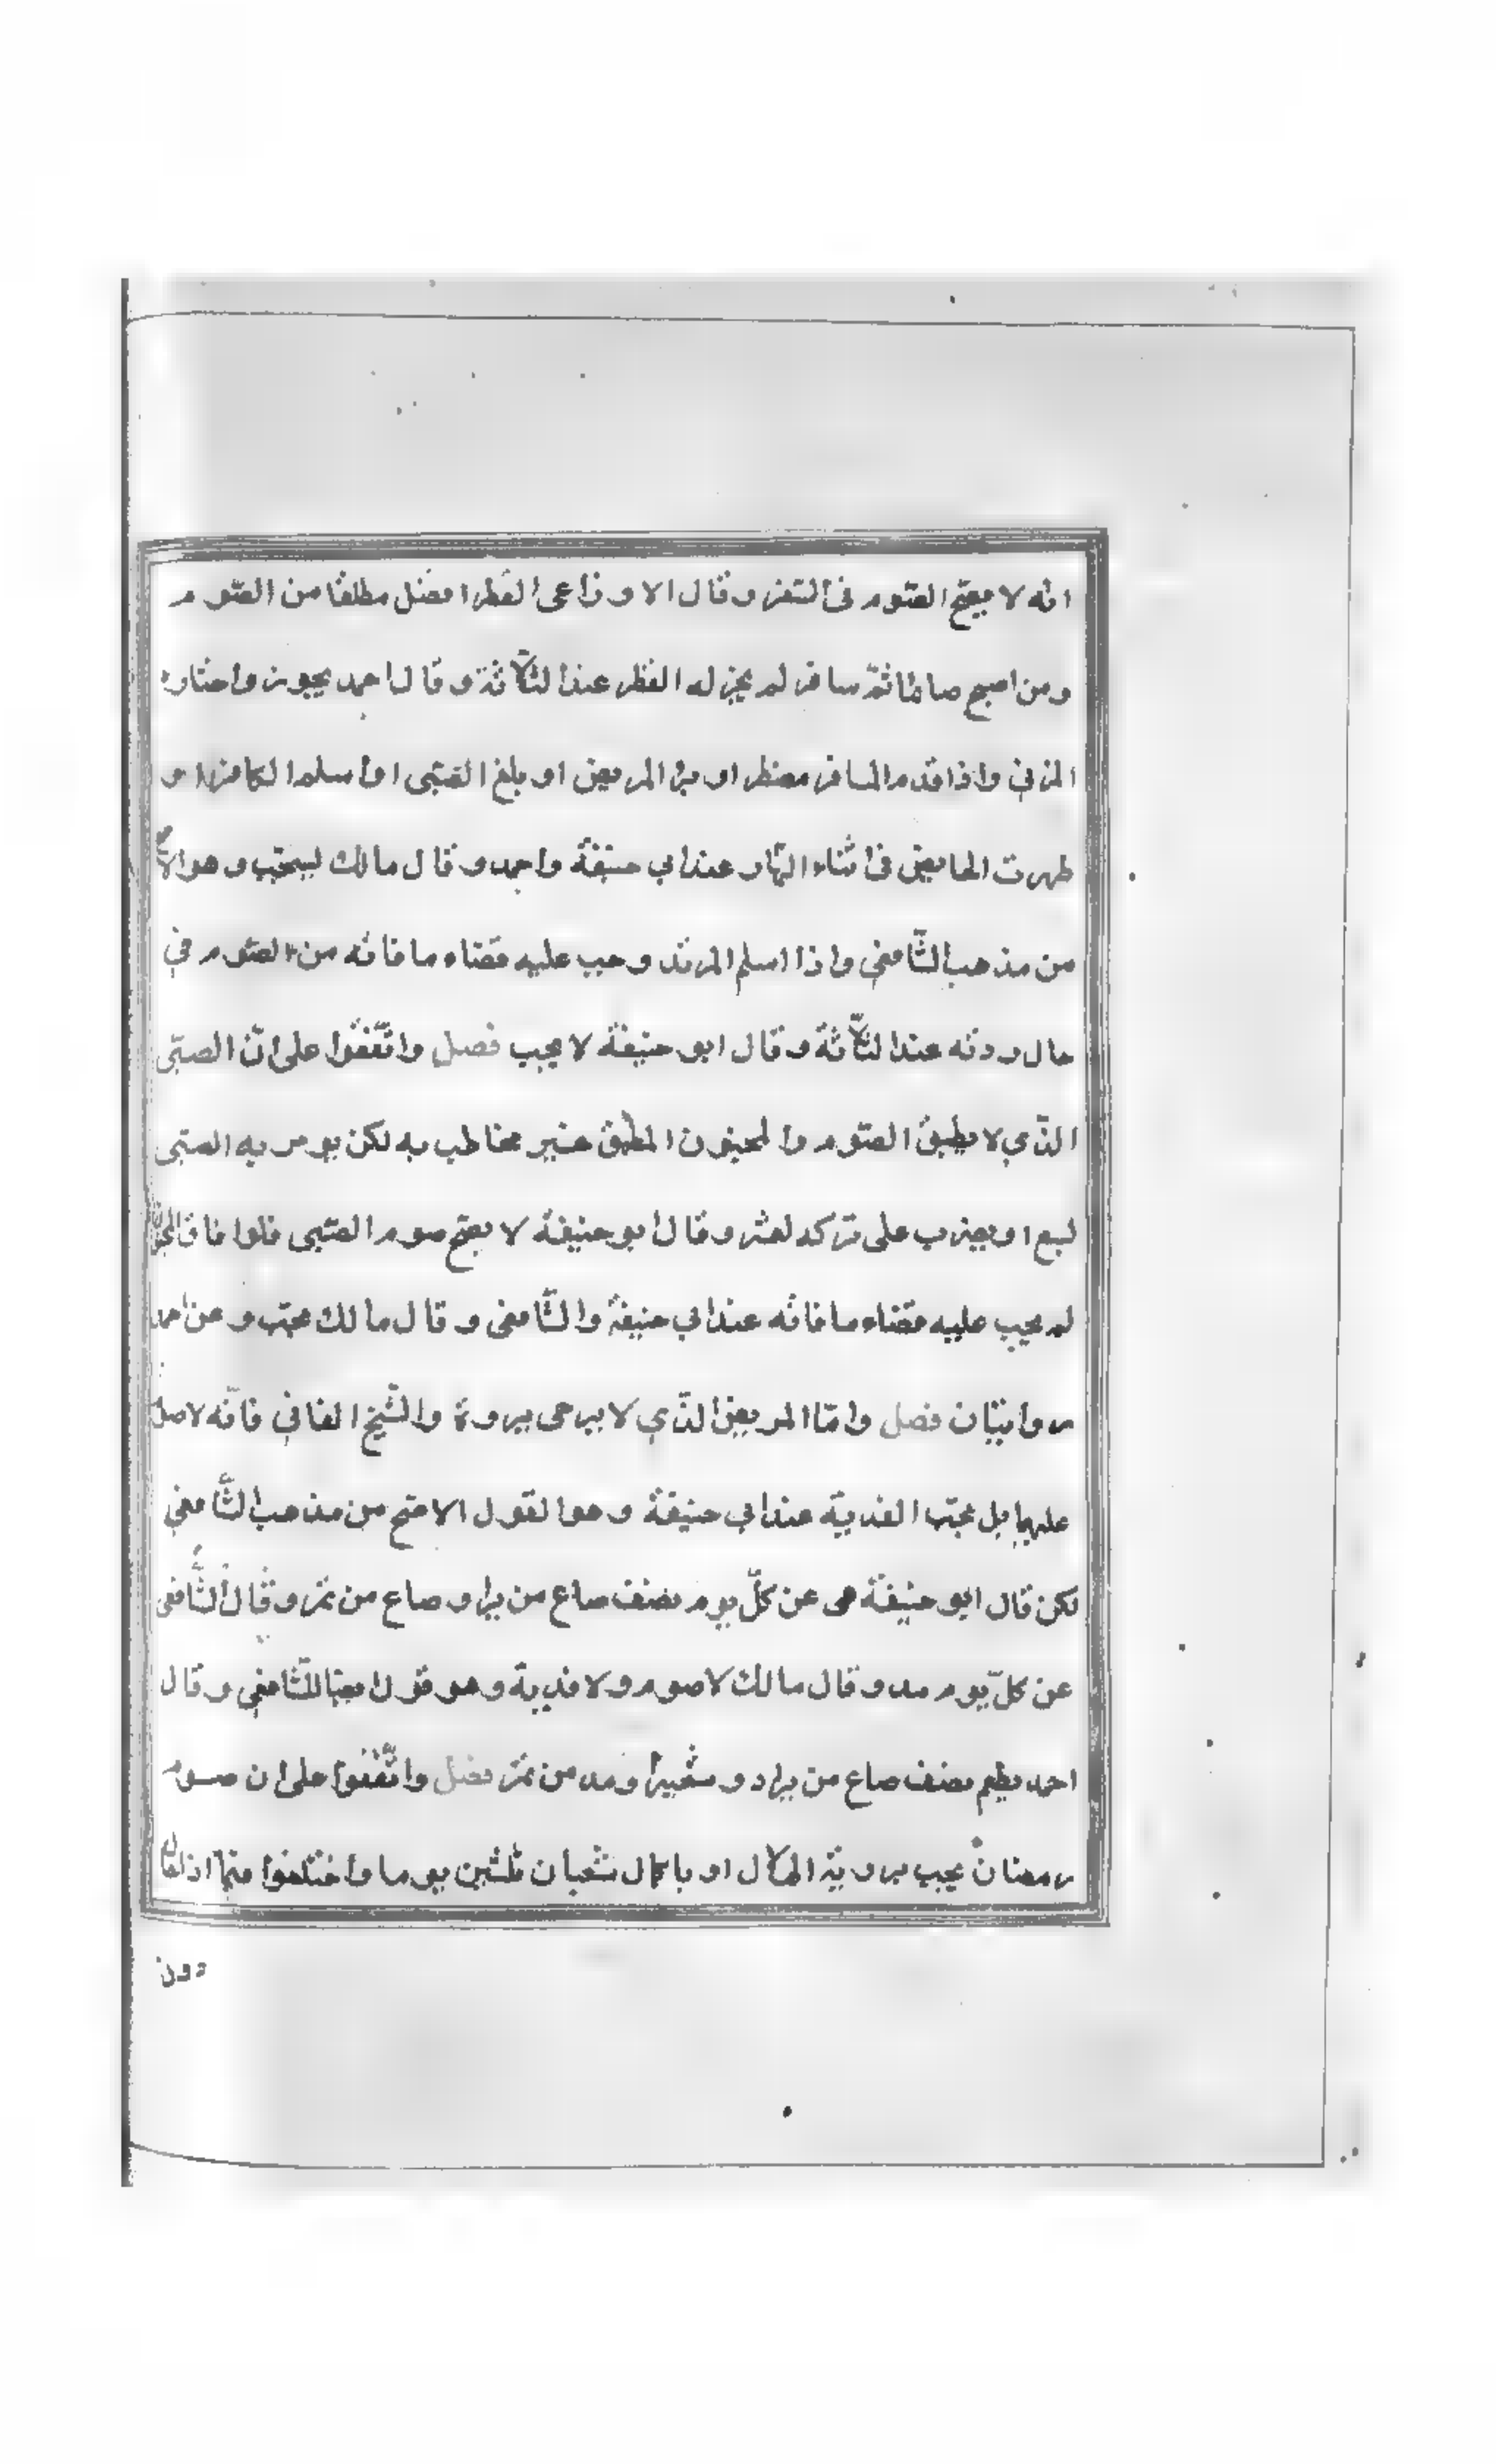 انه لا يصح الصوم فى السفر وقال الاوزاعى الفطر افضل مطلقا من الصوم
ومن اصبح صائما ثم سافر لم يجز له الفطر عند الثلاثة وقال احمد يجوز واختاره
المزني واذا قدم المسافر مفطرا او برا المريض او بلغ الصبى او اسلم الكافر او
طهرت الحايض فى اثناء النهار عند ابي حنيفة واحمد وقال مالك يستحب وهو الاصح
من مذهب الشافعي واذا اسلم المرتد وجب عليه قضاء ما فاته من الصوم في
حال ردته عند الثلاثة وقال ابو حنيفة لا يجب فصل واتفقوا على ان الصبى
الذي لا يطيق الصوم والمجنون المطبق غير مخاطب به لكن يومر به الصبى
لسبع او يضرب على تركه لعشر وقال ابو حنيفة لا يصح صوم الصبى فلو افاق المجنون
لم يجب عليه قضاء ما فاته عند ابي حنيفة والشافعى وقال مالك يجب وعن احمد
روايتان فصل واما المريض الذي لا يرجى بروه والشيخ الفاني فانه لا صوم
عليهما بل يجب الفدية عند ابي حنيفة وهو القول الاصح من مذهب الشافعي
لكن قال ابو حنيفة هى عن كل يوم نصف صاع من بر او صاع من تمر وقال الشافعى
عن كل يوم مد وقال مالك لا صوم ولا فدية وهو قول ايضا للشافعى وقال
احمد يطعم نصف صاع من بر او شعير او مد من تمر فصل واتفقوا على ان صوم
رمضان يجب بروية الهلال او باكمال شعبان ثلثين يوما واختلفوا فيما اذا حال
دون